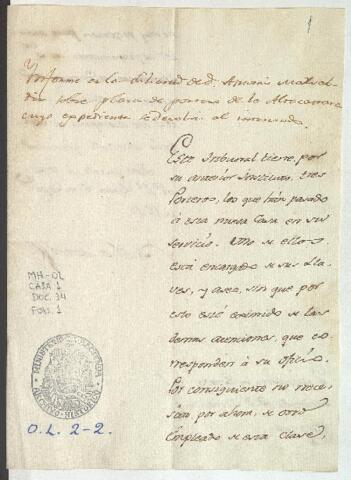 1
Informe en la solicitud de d. Antonio
sobre plaza de portero de la Abocamara
cuyo expediente se devolvió al interesado.
Este Tribunal tiene, por
su anterior Instituto, tres
Porteros, los que han pasado
á esta nueva Casa en su
servicio. Uno de ellos
está encargado de sus Lla-
ves, y aseo, sin que por
esto esté eximido de las
demas atenciones, que co-
rresponden á su oficio.
Por consiguiente no nece-
sita, por ahora, de otro
Empleado de esta Clase,
MH-OL
CAJA 1
DOC. 34
FOL. 1
MINISTERIO DE HACIENDA
ARCHIVO HISTORICO
O.L. 2-2.